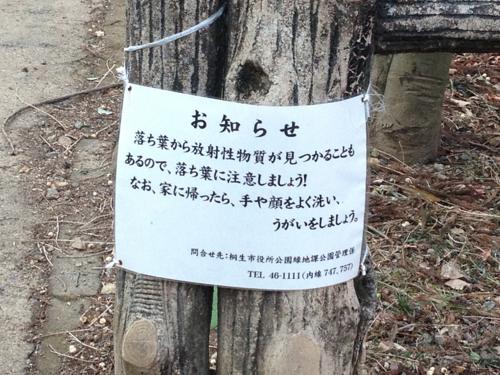 お知らせ
落ち葉から放射性物質が見つかることも
あるので、落ち葉に注意しましょう!
なお、家に帰ったら、手や顔をよく洗い、
うがいをしましょう。
問合せ先:桐生市役所公園緑地課公園管理係
TEL 46-1111(内線 747,757)